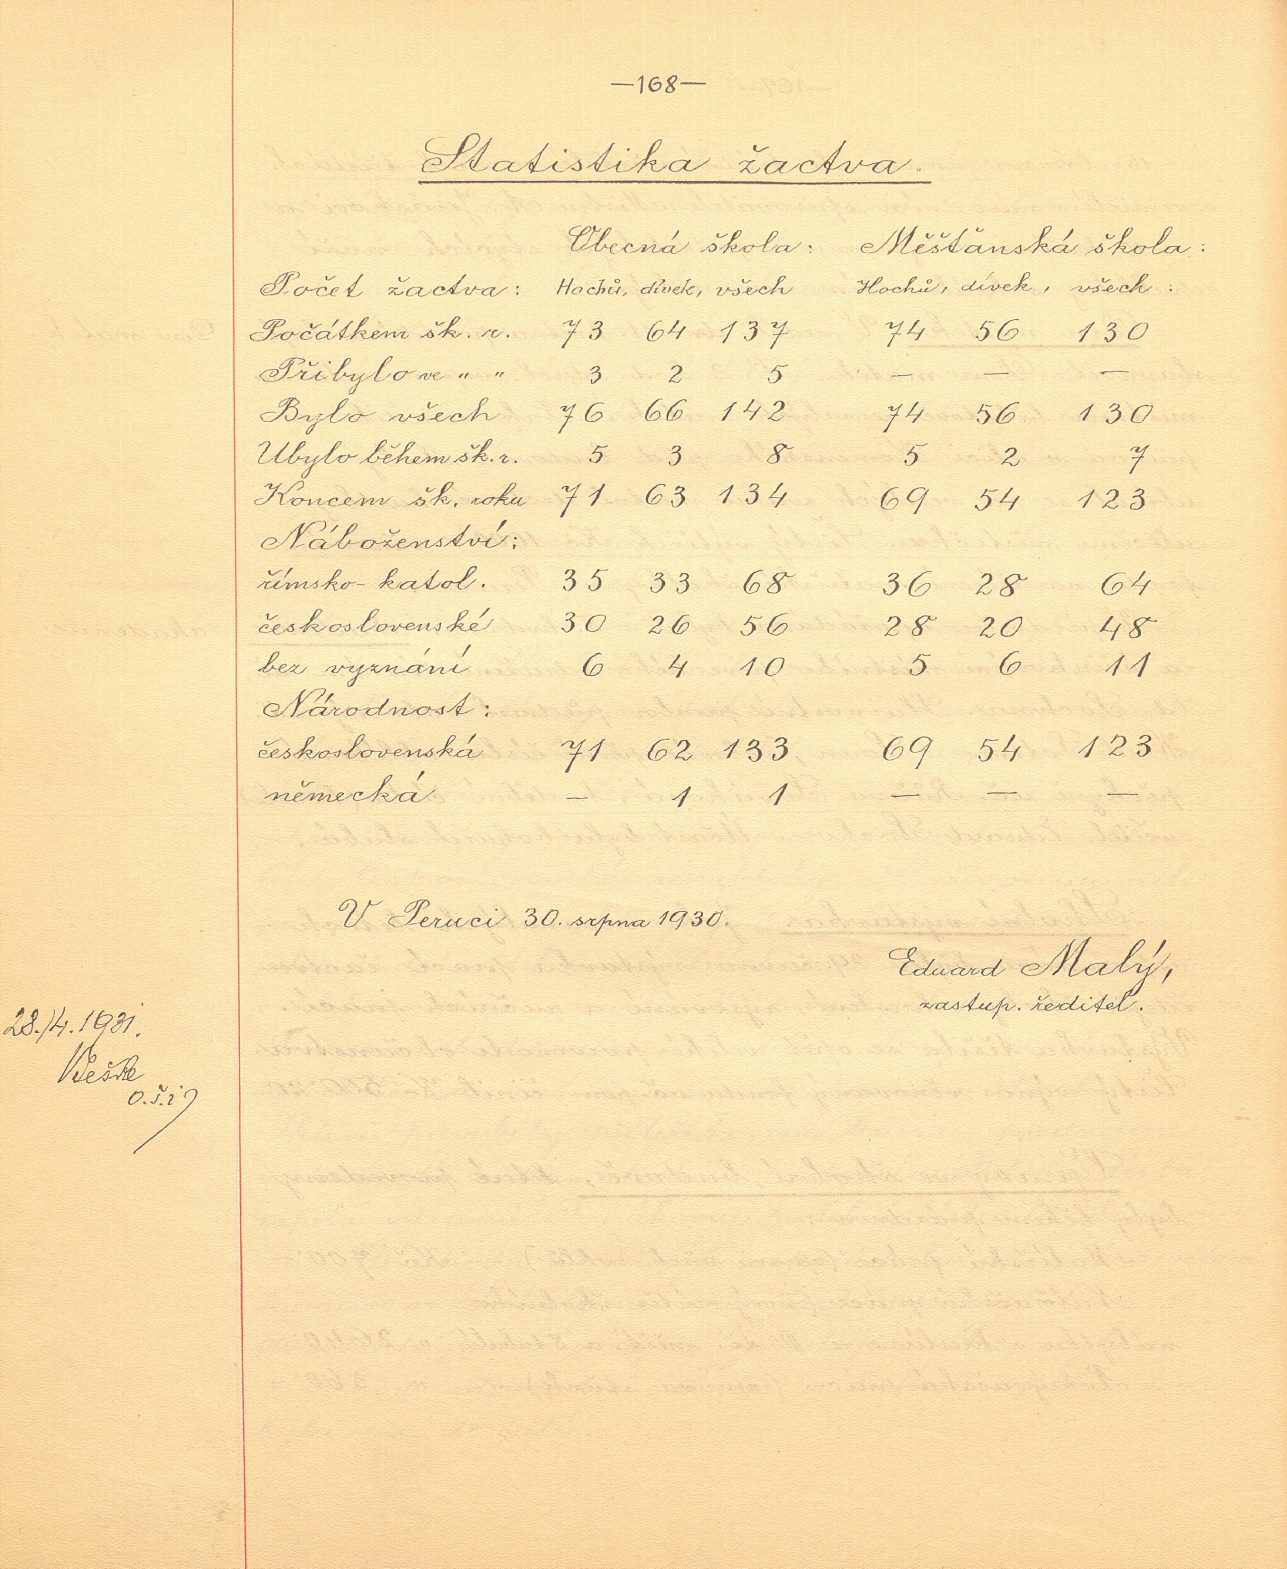 —168—
Statistika žactva.
Obecná škola: Měšťanská škola:
Počet žactva: Hochů, dívek, všech Hochů, dívek, všech:
Počátkem šk. r. 73 64 137 74 56 130
Přibylo ve " " 3 2 5 — — —
Bylo všech 76 66 142 74 56 130
Ubylo během šk. r. 5 3 8 5 2 7
Koncem šk. roku 71 63 134 69 54 123
Náboženství:
římsko-katol. 35 33 68 36 28 64
československé 30 26 56 28 20 48
bez vyznání 6 4 10 5 6 11
Národnost:
československá 71 62 133 69 54 123
německá — 1 1 — — —
V Peruci 30. srpna 1930.
Eduard Malý,
zastup. ředitel.
28./4. 1931.
o. š. i.